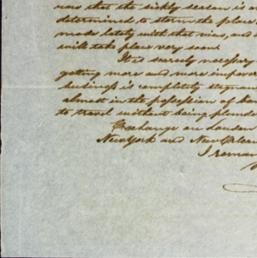 now that the sickly season is
determined to storm the place
made lately with that view, and
will take place very soon.
It is scarcely necessary
getting more and more
business is completely stagnant
almost in the possession of
to travel without being
Exchange on London
New York and New Orleans
I remain